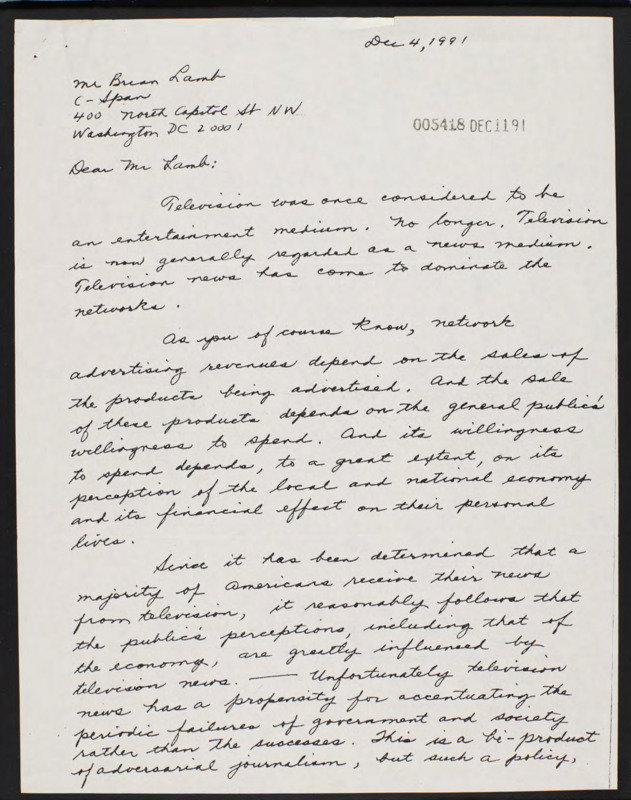 Dec 4, 1991
Mr Brian Lamb
C-Span
400 North Capitol St NW
Washington DC 20001
005418 DEC 11 91
Dear Mr Lamb:
Television was once considered to be
an entertainment medium. No longer. Television
is now generally regarded as a news medium.
Television news has come to dominate the
networks.
As you of course know, network
advertising revenues depend on the sales of
the products being advertised. And the sale
of these products depends on the general public's
willingness to spend. And its willingness
to spend depends, to a great extent, on its
perception of the local and national economy
and its financial effect on their personal
lives.
Since it has been determined that a
majority of Americans receive their news
from television, it reasonably follows that
the public's perceptions, including that of
the economy, are greatly influenced by
television news. — Unfortunately television
news has a propensity for accentuating the
periodic failures of government and society
rather than the successes. This is a bi-product
of adversarial journalism, but such a policy,